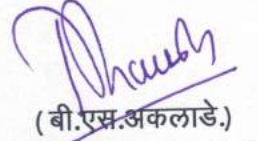 ( बी.एस.अकलाडे.)